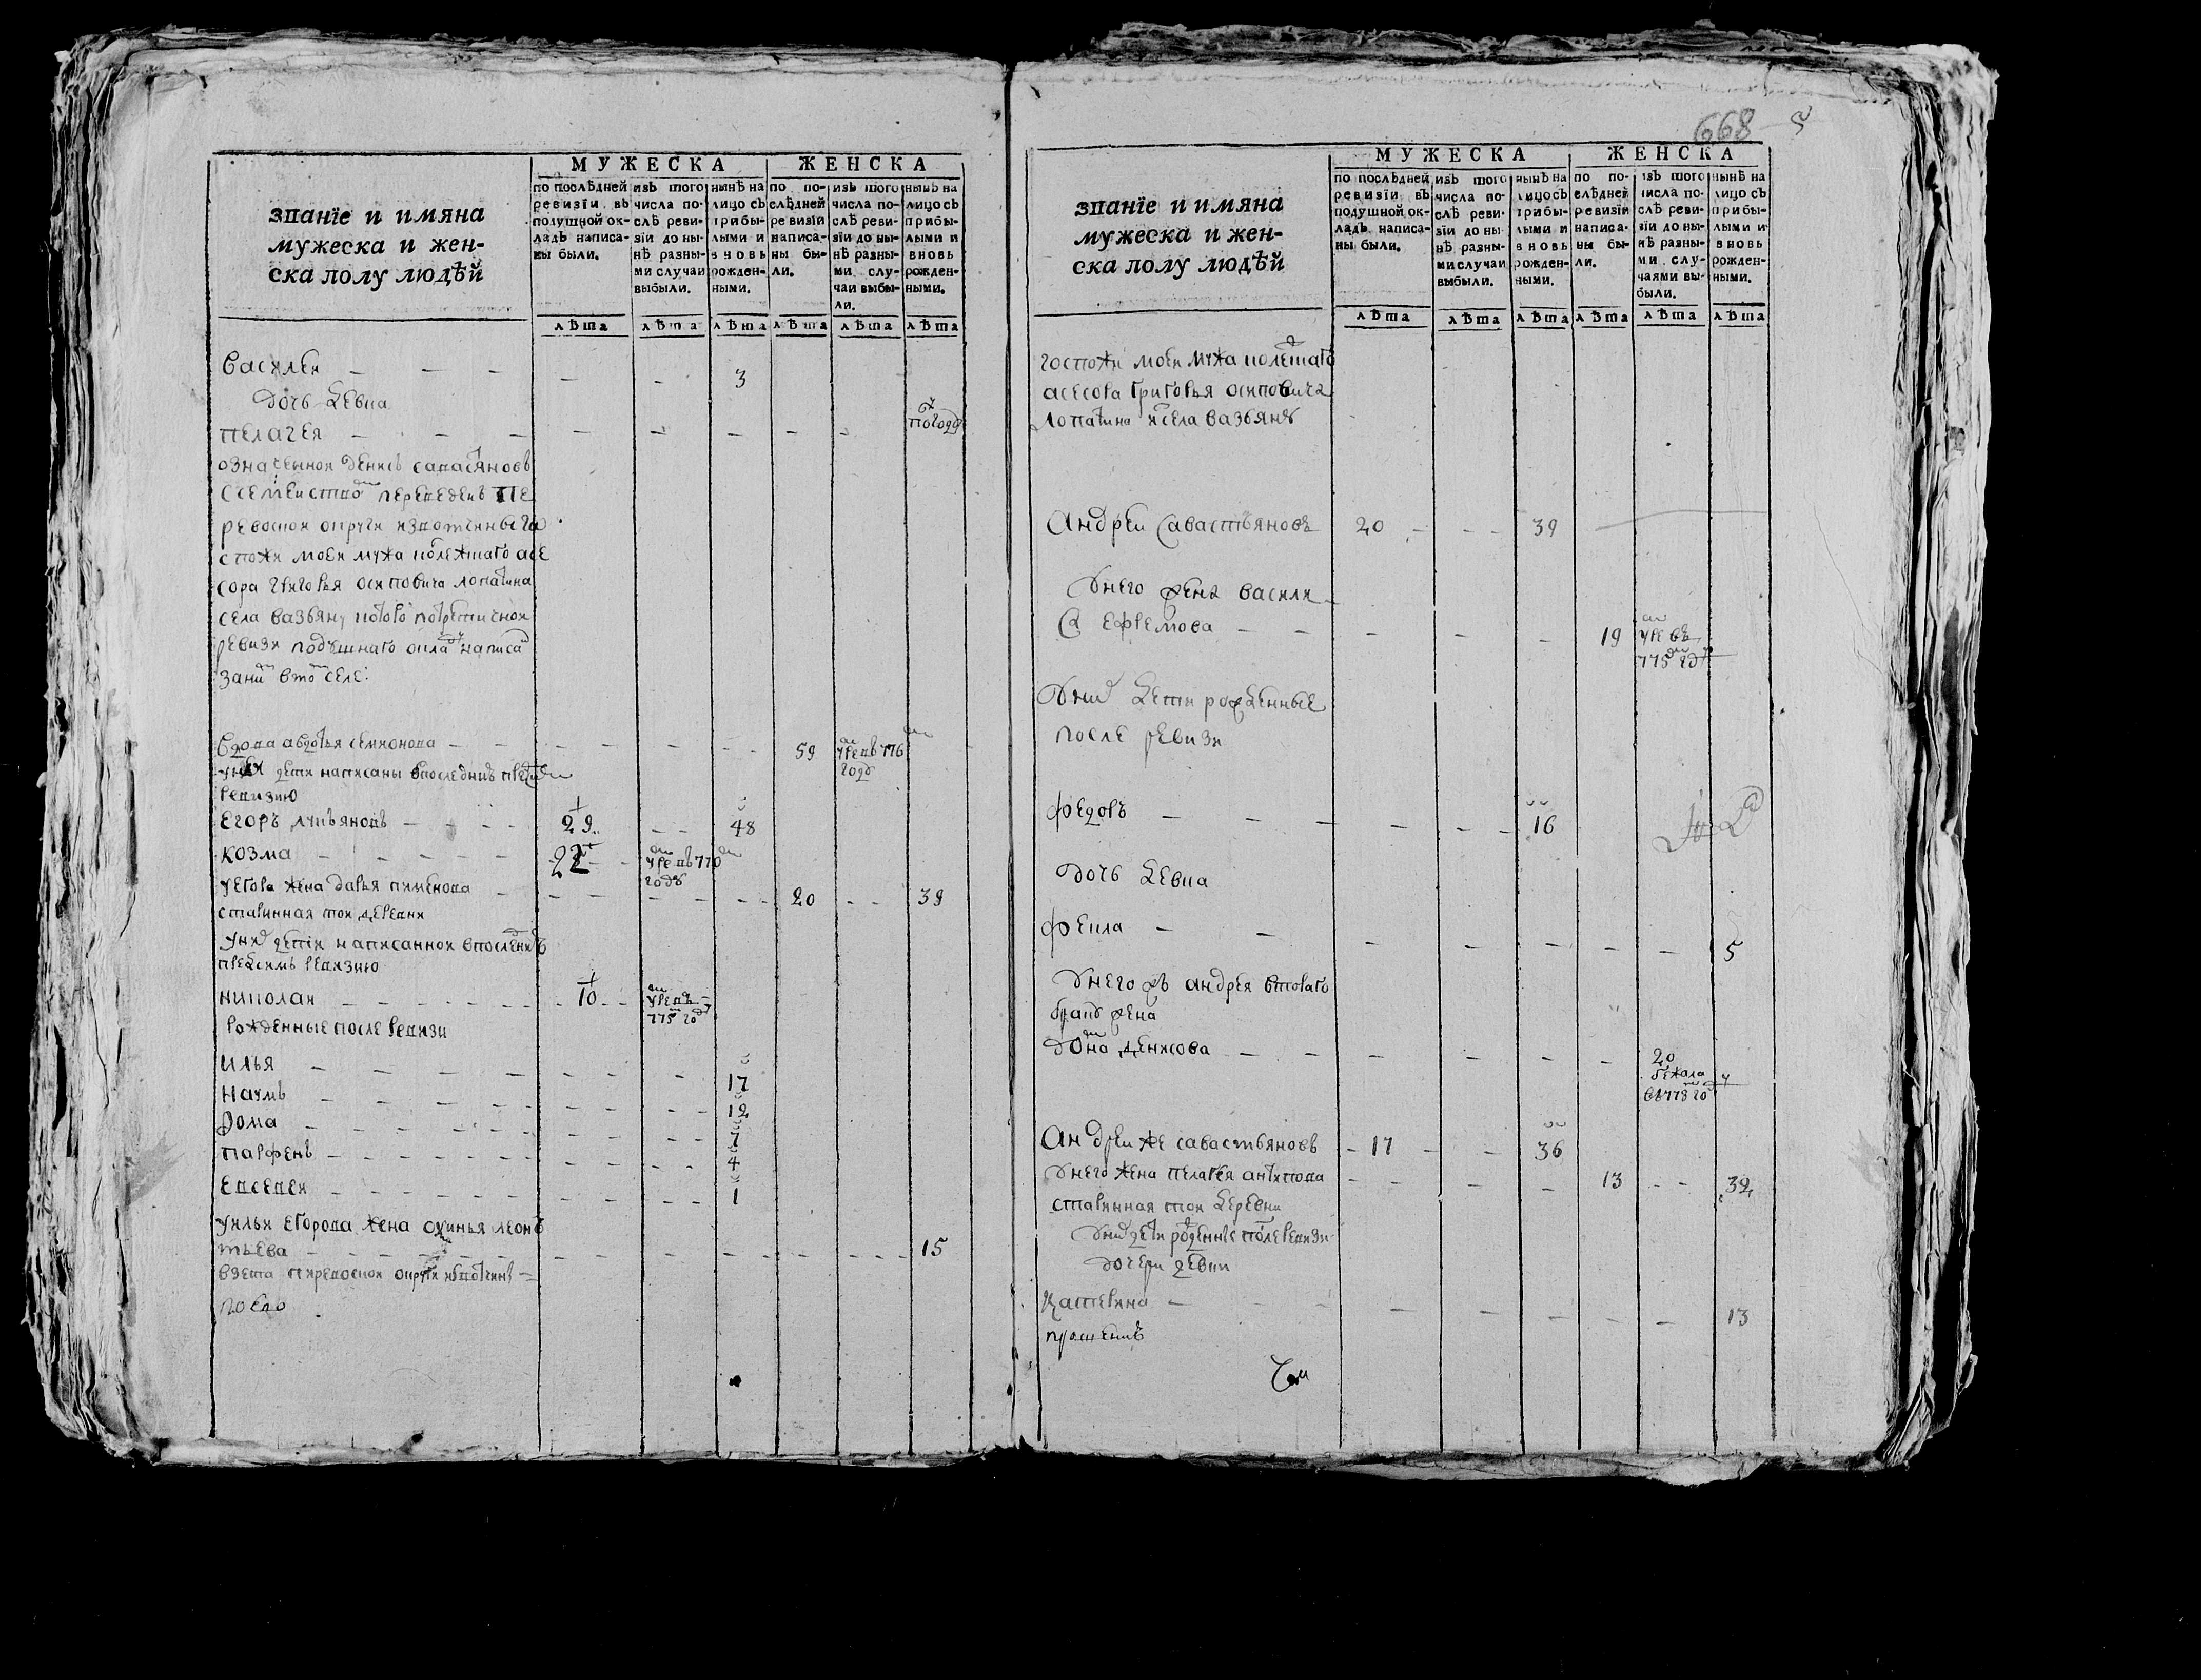 668
МУЖЕСКА
ЖЕНСКА
званїе и имяна
мужеска и жен-
ска полу людѣй
по послѣдней ревизїи въ подушной ок- ладъ написа- ны были.
изъ того числа по- слѣ реви- зїи до ны- нѣ разны- ми случаи выбыли.
нынѣ на лицо съ прибы- лыми и вновь рожден- ными.
по по- слѣдней ревизїи написа- ны бы- ли.
изъ того числа по- слѣ реви- зїи до ны- нѣ разны- ми слу- чаи выбы- ли.
нынѣ на лицо съ прибы- лыми и вновь рожден- ными.
лѣта лѣта лѣта лѣта лѣта лѣта
василеи — — — — — 3
дочь девка
пелагея — — — — — — — — погоду
означенной денисъ савастяновъ
семеиство переведенъ пе
ревоской округи извотчины го
спожи моеи мужа колежшаго асе
сора григорья осиповича лопатина
села вазьянку
ревизи подушнаго написа
вто селе:
вдова авдотья семионова — — — — — — 59 умре в 776 году
у неи дети написаны впоследнию пред
ревизию
егоръ лукьяновъ — — — 29 — — 48
козма — — — — — 22 — умре в 770 году
у егора жена дарья пименова — — — — — — 20 — — 39
старинная тои деревни
у них дети написанной впоследнию
предсимъ ревизию
николаи — — — — — 10 — умре в 775 году
рожденные после ревизи
илья — — — — — — — 17
наумъ — — — — — — — 12
фома — — — — — — — 7
парфенъ — — — — — — — 4
евсевеи — — — — — — — 1
у ильи егорова жена офимья леон
тьева — — — — — — — — — 15
взета округи
МУЖЕСКА
ЖЕНСКА
званїе и имяна
мужеска и жен-
ска полу людѣй
по послѣдней ревизїи въ подушной ок- ладъ написа- ны были.
изъ того числа по- слѣ реви- зїи до ны- нѣ разны- ми случаи выбыли.
нынѣ на лицо съ прибы- лыми и вновь рожден- ными.
по по- слѣдней ревизїи написа- ны бы- ли.
изъ того числа по- слѣ реви- зїи до ны- нѣ разны- ми слу- чаями вы- были.
нынѣ на лицо съ прибы- лыми и вновь рожден- ными.
лѣта лѣта лѣта лѣта лѣта лѣта
госпожи моеи мужа колежшаго
асесора григорья осиповича
лопатина села вазьянъ
Андреи савастьяновъ 20 — — — 39
у него жена васили
са ефремова — — — — — 19 умре въ 775 году
у них дети рожденные
после ревизи
федоръ — — — — — — 16
дочь девка
фекла — — — — — — — 5
у него жъ андрея втораго
брата жена
домна денисова — — — — — — 20 бежала въ 778 году
Андреи же савастьяновъ — 17 — — 36
у него жена пелагея антипова — — — — 13 — — 32
старинная тои деревни
у них дети рожденные после ревизи
дочери девки
катерина — — — — — — — 13